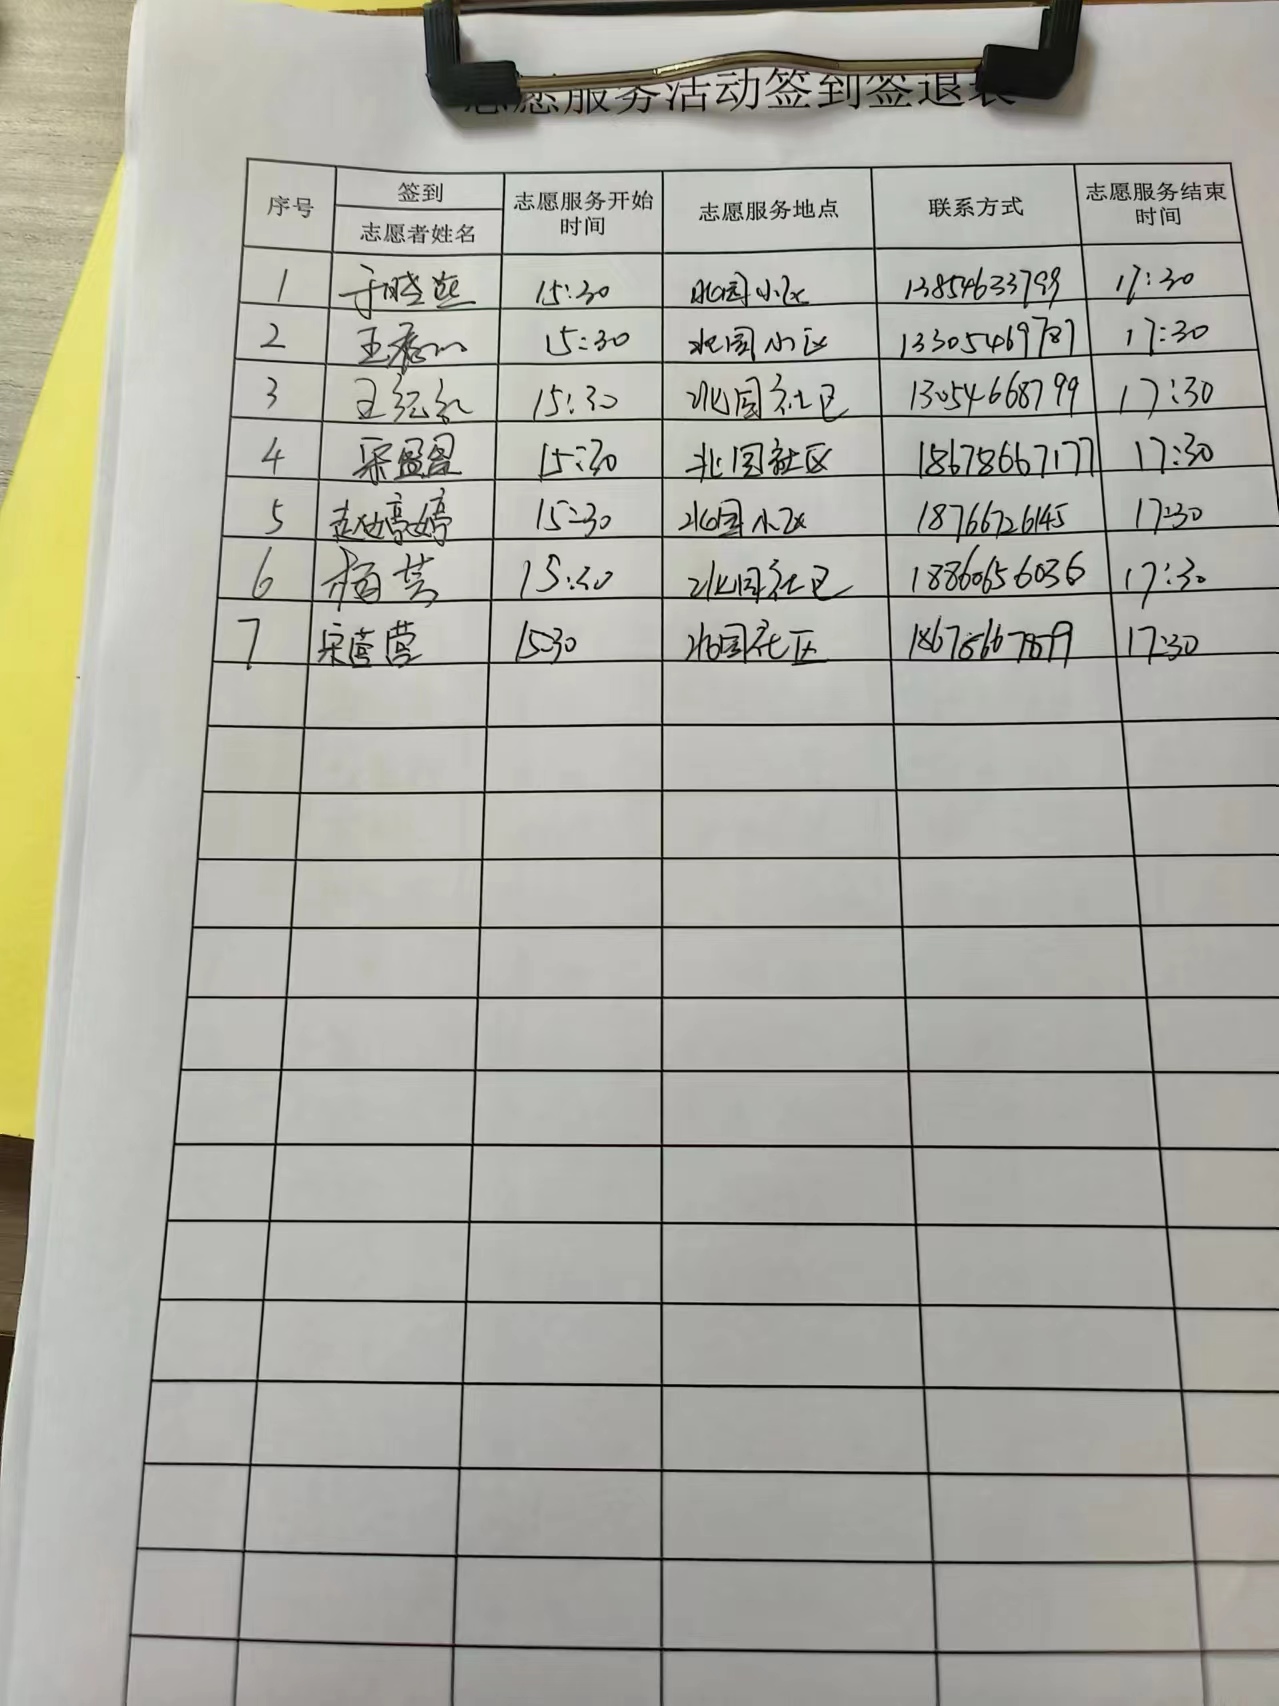 志愿服务活动签到签退表
序号 签到 志愿服务开始时间 志愿服务地点 联系方式 志愿服务结束时间
志愿者姓名
1 于晓燕 15:30 北园小区 13854633799 17:30
2 王 15:30 北园小区 13305469787 17:30
3 王红礼 15:30 北园社区 13054668799 17:30
4 宋盈盈 15:30 北园社区 18678667177 17:30
5 赵婷婷 15:30 北园小区 18766726145 17:30
6 杨芸 15:30 北园社区 18860656036 17:30
7 宋营营 15:30 北园社区 18678667859 17:30